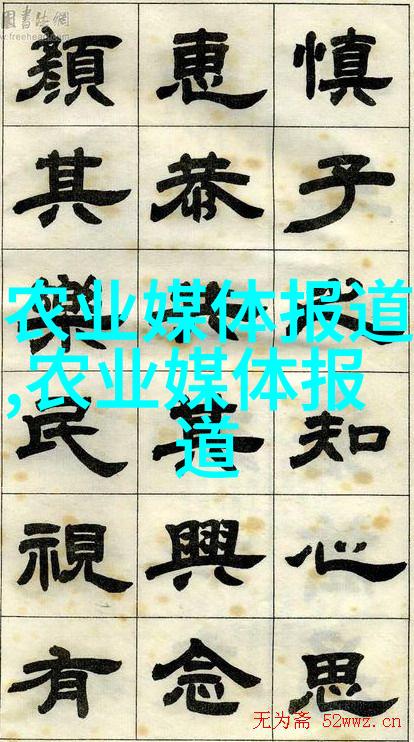 国書法網
农业媒体报道
,农业媒体报
道
慎子知心思
惠恭其興念
顏其樂民視有
无为斋 52wwz.cn